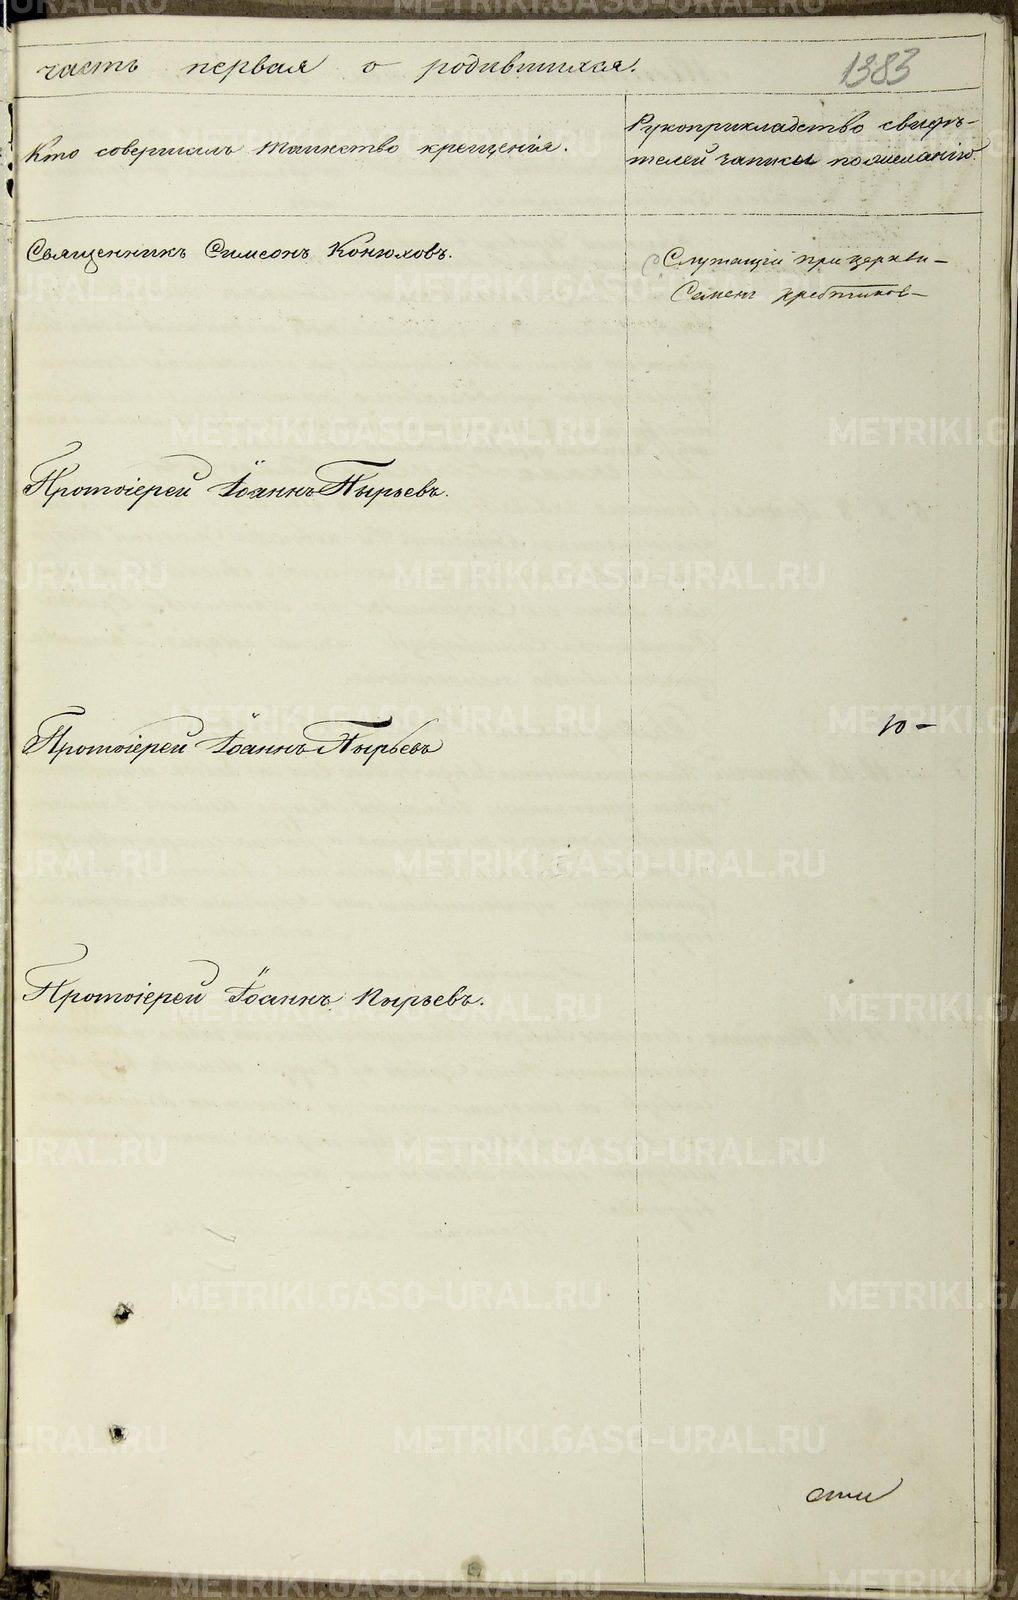 часть первая о родившихся.
1383
Кто совершалъ таинство крещенія.
Рукоприкладство свидѣ-
телей записи по желанію.
Священникъ Симеонъ Конюховъ.
Служащій при церкви
Семенъ
Протоіерей Іоаннъ Пырьевъ.
Протоіерей Іоаннъ Пырьевъ
Протоіерей Іоаннъ Пырьевъ.
METRIKI.GASO-URAL.RU